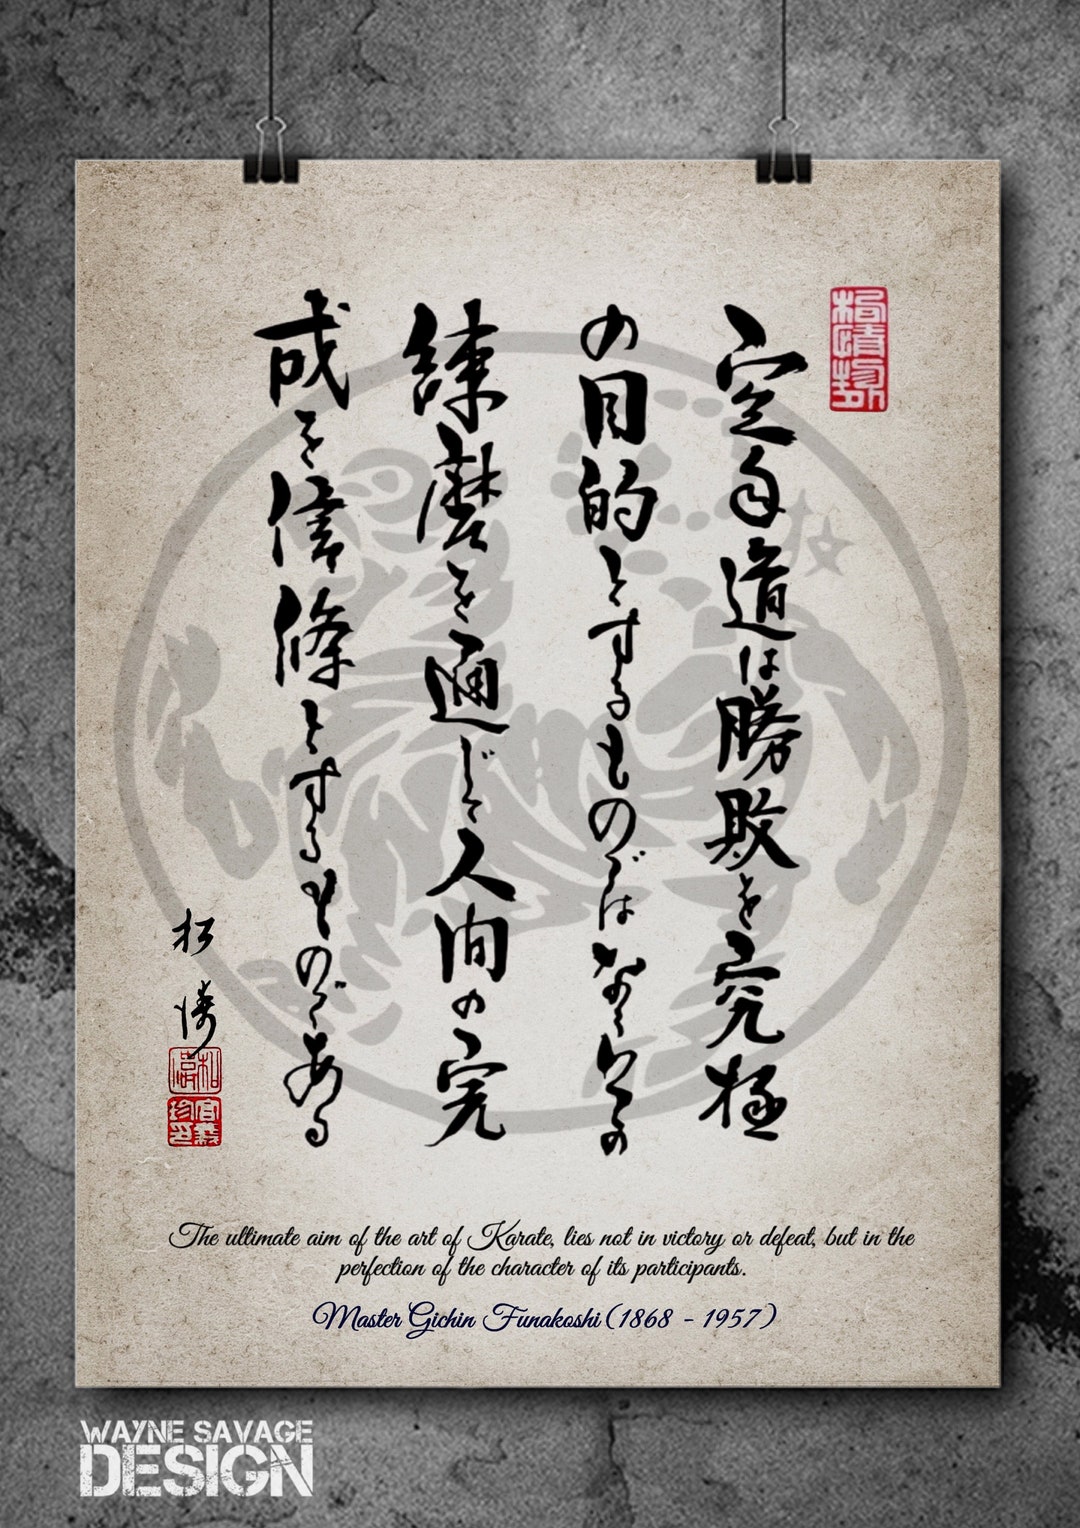 空手道は勝敗を究極
の目的とするものではなくその
練磨を通じて人間の完
成を信條とするものである
松
濤
The ultimate aim of the art of Karate, lies not in victory or defeat, but in the
perfection of the character of its participants.
Master Gichin Funakoshi (1868 - 1957)
WAYNE SAVAGE
DESIGN